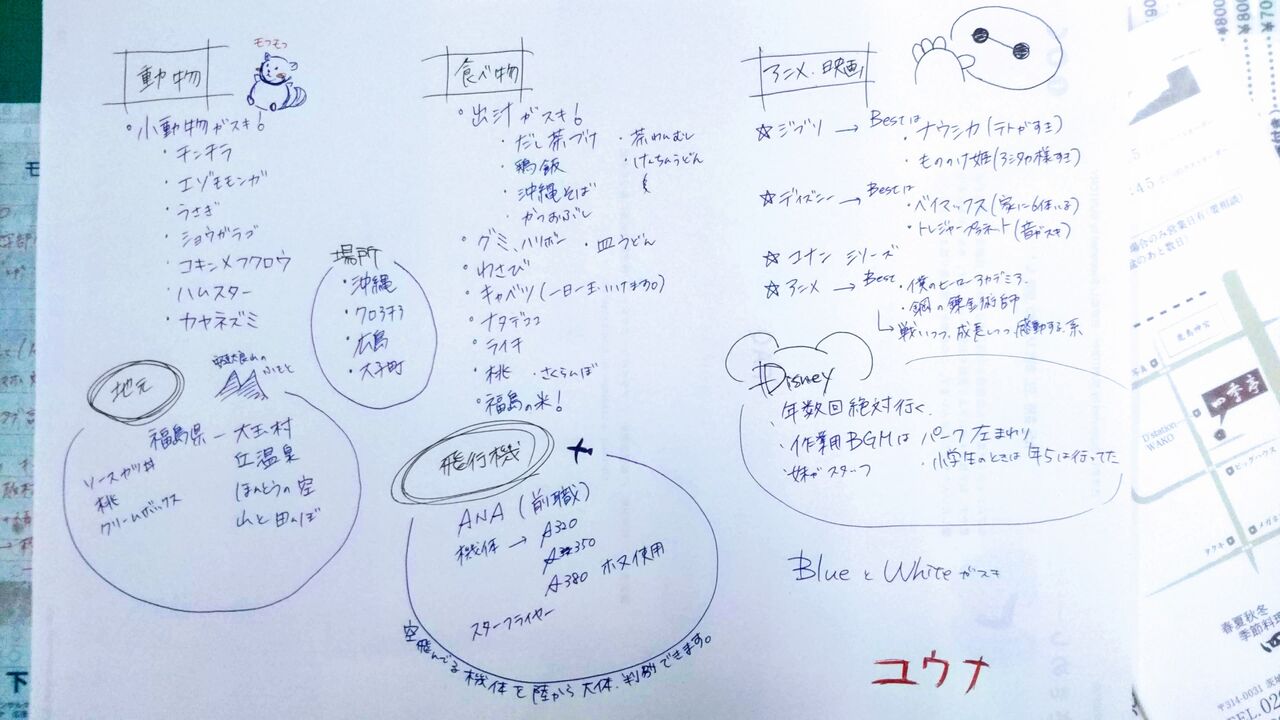 動物
モフモフ
小動物がスキ！
・チンチラ
・エゾモモンガ
・うさぎ
・ショウガラゴ
・コキンメフクロウ
・ハムスター
・カヤネズミ
場所
・沖縄
・広島
・大子町
地元
安達太良山の
ふもと
福島県 ー 大玉村
岳温泉
ほんとうの空
山と田んぼ
ソースカツ丼
桃
クリームボックス
食べ物
出汁がスキ！
・だし茶づけ ・茶わんむし
・鶏飯 ・けんちんうどん
・沖縄そば
・かつおぶし
グミ、ハリボー ・皿うどん
わさび
キャベツ(一日一玉いけます。)
ナタデココ
ライチ
桃 ・さくらんぼ
福島の米！
飛行機
ANA (前職)
機体 → A320
A350
A380 ホヌ使用
スターフライヤー
空飛んでる機体を陸から大体、判別できます。
アニメ・映画
☆ジブリ → Bestは
・ナウシカ(テトがすき)
・もののけ姫(アシタカ様すき)
☆ディズニー → Bestは
・ベイマックス(家に6体いる)
・トレジャープラネット(音がスキ)
☆コナン シリーズ
☆アニメ → Best ・僕のヒーローアカデミア
・鋼の錬金術師
戦いつつ、成長しつつ感動する系
Disney
・年数回絶対行く。
・作業用BGMは パーク左まわり
・妹がスタッフ ・小学生のときは年5は行ってた
Blue と White がスキ
ユウナ
場合のみ営業日有(要相談)
鹿島神宮
四季亭
D'station
WAKO
ビッグハウス
春夏秋冬
季節料理
〒314-0031